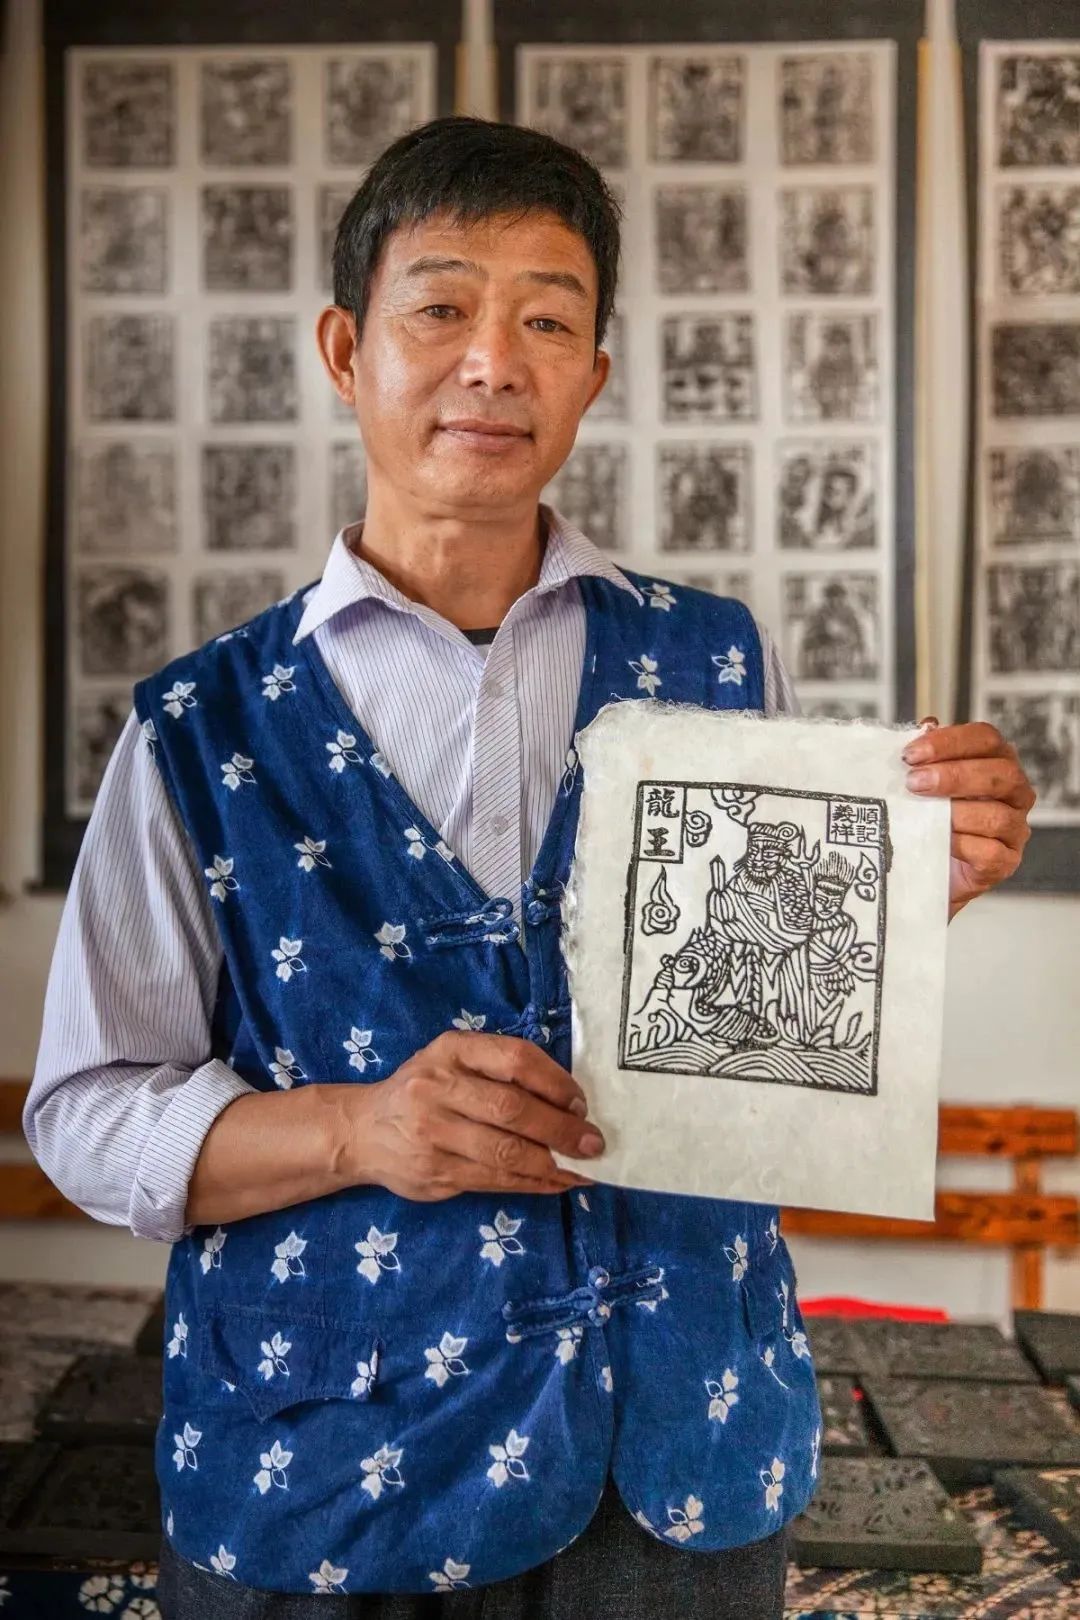 龍王
順記
義祥